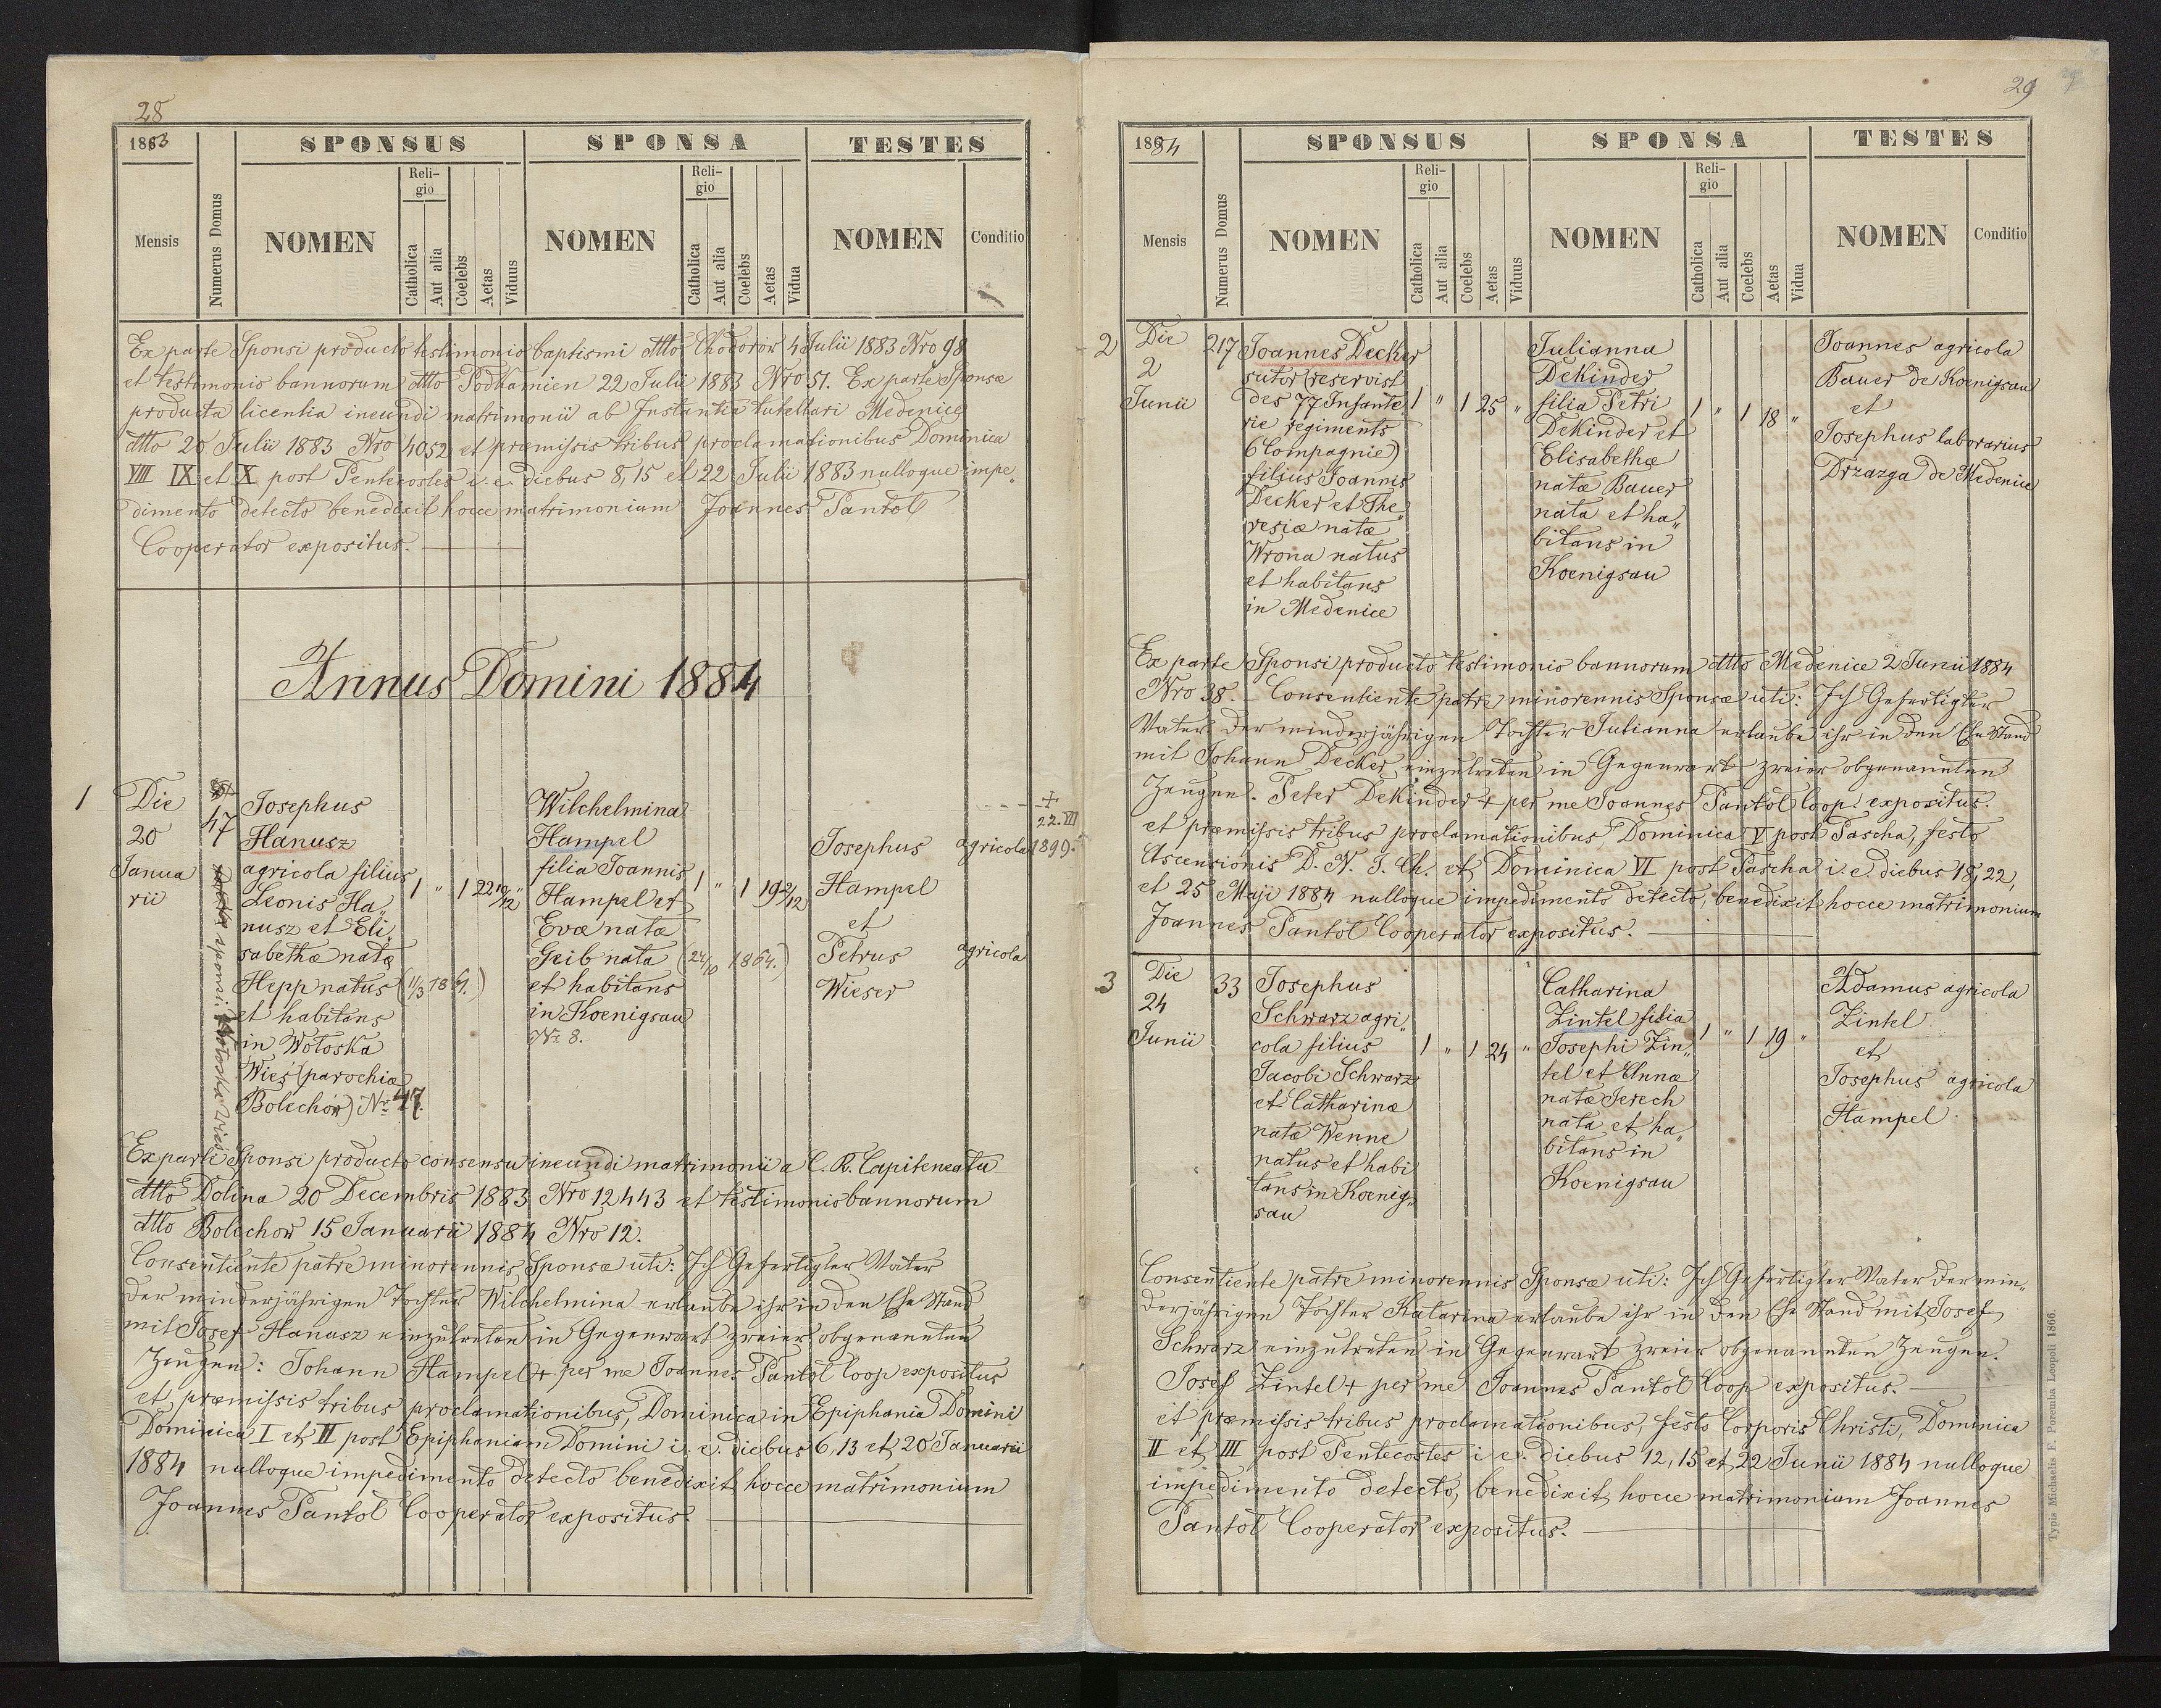 28
1883
SPONSUS
SPONSA
TESTES
Mensis
Numerus Domus
NOMEN
Reli-
gio
Catholica
Aut alia
Coelebs
Aetas
Viduus
NOMEN
Reli-
gio
Catholica
Aut alia
Coelebs
Aetas
Vidua
NOMEN
Conditio
Ex parte Sponsi producto testimonio baptismi dtto Chodorów 4 Julii 1883 Nro 98
et testimonio bannorum dtto Podkamien 22 Julii 1883 Nro 51. Ex parte Sponsæ
producta licentia ineundi matrimonii ab Instantia tutellari Medenice
dtto 20 Julii 1883 Nro 4052 et præmissis tribus proclamationibus Dominica
VIII IX et X post Pentecostes i. e. diebus 8, 15 et 22 Julii 1883 nulloque impe„
dimento detecto benedixit hocce matrimonium Joannes Pantoł
Cooperator expositus.
Annus Domini 1884
1
Die
20
Janua
rii
47
sponsi: Wołoska Wieś
Josephus
Hanusz
agricola filius
Leonis Ha„
nusz et Eli„
sabethæ natæ
Hepp natus (1/3 1861.)
et habitans
in Wołoska
Wieś (parochiæ
Bolechów) Nr 47.
1 „ 1 22 10/12 „
Wilchelmina
Hampel
filia Joannis
Hampel et
Evæ natæ
Geib nata (24/10 1864.)
et habitans
in Koenigsau
Nr 8.
1 „ 1 19 2/12
Josephus agricola
Hampel
et
Petrus agricola
Wieser
+
22.VII
1899.
Ex parte Sponsi producto consensu ineundi matrimonii a C. R. Capiteneatu
dtto Dolina 20 Decembris 1883 Nro 12443 et testimonio bannorum
dtto Bolechow 15 Januarii 1884 Nro 12.
Consentiente patre minorennis Sponsæ uti: Ich Gefertigter Vater
der minderjährigen Tochter Wilchelmina erlaube ihr in den Ehe Stand
mit Josef Hanusz einzutreten in Gegenwart zweier obgenannten
Zeugen: Johann Hampel + per me Joannes Pantoł Coop expositus
et præmissis tribus proclamationibus, Dominica in Epiphania Domini
Dominica I et II post Epiphaniam Domini i. e. diebus 6, 13 et 20 Januarii
1884 nulloque impedimento detecto benedixit hocce matrimonium
Joannes Pantoł Cooperator expositus.
29
1884
SPONSUS
SPONSA
TESTES
Mensis
Numerus Domus
NOMEN
Reli-
gio
Catholica
Aut alia
Coelebs
Aetas
Viduus
NOMEN
Reli-
gio
Catholica
Aut alia
Coelebs
Aetas
Vidua
NOMEN
Conditio
2
Die
2
Junii
217
Joannes Decker
sutor (reservist
des 77 Infante„
rie regiments
6 Compagnie)
filius Joannis
Decker et The„
resiæ natæ
Wrona natus
et habitans
in Medenice
1 „ 1 25 „
Julianna
DeKinder
filia Petri
DeKinder et
Elisabethæ
natæ Bauer
nata et ha„
bitans in
Koenigsau
1 „ 1 18 „
Joannes agricola
Bauer de Koenigsau
et
Josephus laborarius
Drzazga de Medenice
Ex parte Sponsi producto testimonio bannorum dtto Medenice 2 Junii 1884
Nro 38. Consentiente patre minorennis Sponsæ uti: Ich Gefertigter
Vater der minderjährigen Tochter Julianna erlaube ihr in den Ehe Stand
mit Johann Decker einzutreten in Gegenwart zweier obgenannten
Zeugen. Peter DeKinder + per me Joannes Pantoł Coop. expositus.
et præmissis tribus proclamationibus, Dominica V post Pascha, festo
Ascensionis D. N. J. Ch. et Dominica VI post Pascha i. e. diebus 18, 22,
et 25 Maji 1884 nulloque impedimento detecto, benedixit hocce matrimonium
Joannes Pantoł Cooperator expositus.
3
Die
24
Junii
33
Josephus
Schwarz agri„
cola filius
Jacobi Schwarz
et Catharinæ
natæ Wenne
natus et habi
tans in Koenig„
sau
1 „ 1 24 „
Catharina
Zintel filia
Josephi Zin„
tel et Annæ
natæ Jerech
nata et ha„
bitans in
Koenigsau
1 „ 1 19 „
Adamus agricola
Zintel
et
Josephus agricola
Hampel
Consentiente patre minorennis Sponsæ uti: Ich Gefertigter Vater der min„
derjährigen Tochter Katarina erlaube ihr in den Ehe Stand mit Josef
Schwarz einzutreten in Gegenwart zweier obgenannten Zeugen.
Josef Zintel + per me Joannes Pantoł Coop expositus.
et præmissis tribus proclamationibus, festo Corporis Christi, Dominica
II et III post Pentecostes i. e. diebus 12, 15 et 22 Junii 1884 nulloque
impedimento detecto, benedixit hocce matrimonium Joannes
Pantoł Cooperator expositus.
Typis Michaelis F. Poremba Leopoli 1866.